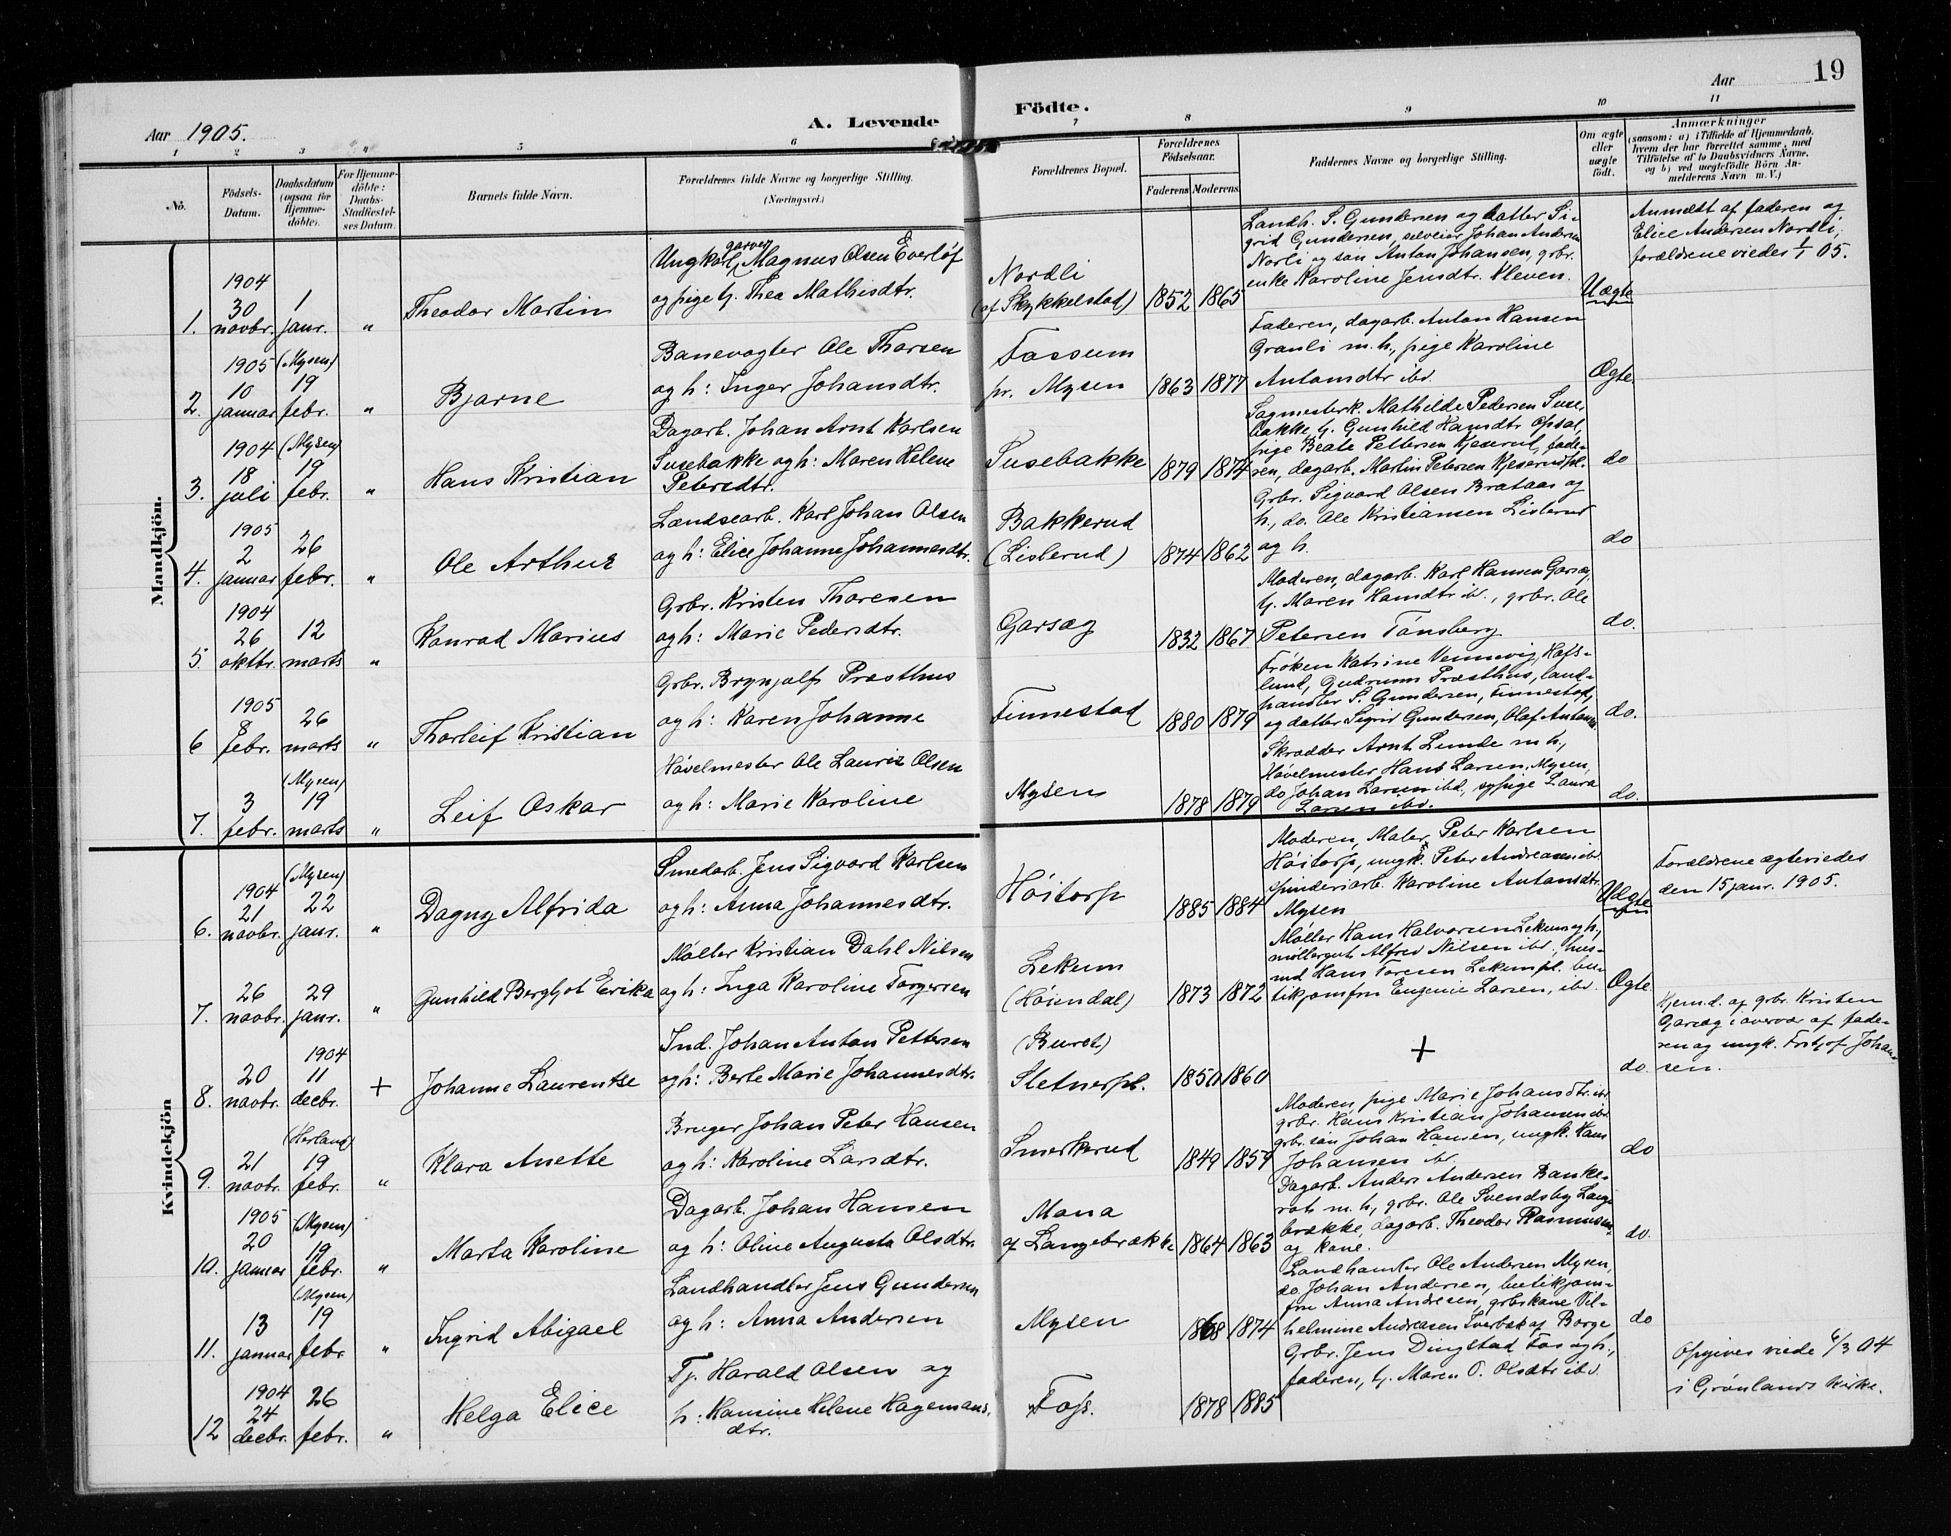 19
Aar 1905.
A. Levende Födte.
Aar
1 2 3 4 5 6 7 8 9 10 11
No.
Födsels-Datum.
Daabsdatum (ogsaa for Hjemme-döbte).
For Hjemme-döbte: Daabs-Stadfæstel-ses Datum.
Barnets fulde Navn.
Forældrenes fulde Navne og borgerlige Stilling. (Næringsvei.)
Forældrenes Bopæl.
Forældrenes Födselsaar.
Faderens Moderens
Faddernes Navne og borgerlige Stilling.
Om ægte eller uægte födt.
Anmærkninger
(saasom: a) i Tilfælde af Hjemmedaab, hvem der har forrettet samme, med Tilföielse af to Daabsvidners Navne, og b) ved uægtefödte Börn An-melderens Navn m. V.)
Mandkjön.
1. 1904 30 novbr. 1 janr. "
Theodor Martin
Ungkarl, garver Magnus Olsen Everløf
og pige tj. Thea Mathisdtr.
Nordli
(af Skykkelstad) 1852 1865
Landh. S. Gundersen og datter Si-
grid Gundersen, selveier Johan Andersen
Norli og søn Anton Johansen, grbr.
enke Karoline Jensdtr. Kleven.
Uægte
Anmeldt af faderen og
Elice Andersen Nordli,
forældrene viedes 1/1 05.
2. 1905 10 januar (Mysen) 19 febr. "
Bjarne
Banevogter Ole Thorsen
og h: Inger Johansdtr.
Fossum
pr. Mysen 1863 1877
Faderen, dagarb. Anton Hansen
Granli m. h, pige Karoline
Antonsdtr ibd.
Ægte
3. 1904 18 juli (Mysen) 19 febr. "
Hans Kristian
Dagarb. Johan Arnt Karlsen
Susebakke og h: Maren Helene
Petersdtr.
Susebakke 1879 1874
Sagmesterk. Mathilde Pedersen Suse-
bakke, tj. Gunhild Hansdtr Opsal,
pige Beate Pettersen Kjeserud, fade-
ren, dagarb. Martin Petersen Kjeserudpl.
do
4. 1905 2 januar 26 febr. "
Ole Arthur
Lændsearb. Karl Johan Olsen
og h: Elice Johanne Johannesdtr.
Bakkerud
(Lislerud) 1874 1862
Grbr. Sigvard Olsen Brataas og
h., do. Ole Kristiansen Lislerud
og h.
do
5 1904 26 oktbr. 12 marts "
Konrad Marius
Grbr. Kristen Thoresen
og h: Marie Pedersdtr.
Garsæg 1832 1867
Moderen, dagarb. Karl Hansen Garsæg,
tj. Maren Hansdtr ibd., grbr. Ole
Petersen Tønsberg
do.
6 1905 8 febr. 26 marts "
Thorleif Kristian
Grbr. Brynjolf Præsthus
og h: Karen Johanne
Finnestad 1880 1879
Frøken Katrine Vennevig, Hafs-
lund, Gudrunn Præsthus, land-
handler S. Gundersen, Finnestad,
og datter Sigrid Gundersen, Olaf Antonsen
do.
7. 3 febr. (Mysen) 19 marts "
Leif Oskar
Høvelmester Ole Lauriz Olsen
og h: Marie Karoline
Mysen 1878 1879
Skrædder Arnt Lunde m. h.,
Høvelmester Hans Larsen, Mysen,
do Johan Larsen ibd, sypige Laura
Larsen ibd.
do.
Kvindekjön
6. 1904 21 novbr. (Mysen) 22 janr. "
Dagny Alfrida
Smedarb. Jens Sigvard Karlsen
og h: Anna Johannesdtr.
Høitorp 1885 1884
Moderen, Maler Peter Karlsen
Høitorp, ungk. Peter Andreasen ibd
spinderiarb. Karoline Antonsdtr.
Mysen
Uægte
Forældrene ægteviedes
den 15 janr. 1905.
7. 26 novbr. 29 janr. "
Gunhild Bergljot Erika
Møller Kristian Dahl Nilsen
og h: Inga Karoline Torgersen
Lekum
(Høiendal) 1873 1872
Møller Hans Halvorsen Lekum og h,
møllergut Alfred Nilsen ibd, hus-
md Hans Toresen Lekumpl. bu-
tikjomfru Eugenie Larsen, ibd.
Ægte
8. 20 novbr. 1904 11 decbr. +
Johanne Laurentse
Ind. Johan Anton Pettersen
og h: Berte Marie Johannesdtr.
(Buret)
Sletnerpl. 1850 1860
+
do
Hjemd. af grbr. Kristen
Garsæg i overvær af fade-
ren og ungk. Fritjof Johan-
sen.
9. 21 novbr. (Herland) 19 febr. "
Klara Anette
Bruger Johan Peter Hansen
og h: Karoline Larsdtr.
Smerkerud 1849 1859
Moderen, pige Marie Johansdtr. ibd
grbr. Hans Kristian Johansen ibd
grbr. søn Johan Hansen, ungk. Hans
Johansen ibd.
do
10. 1905 20 januar (Mysen) 19 febr. "
Marta Karoline
Dagarb. Johan Hansen
og h: Oline Augusta Olsdtr.
Mona
af Langebrække 1864 1863
Dagarb. Anders Andersen Banke-
rat m. h, grbr. Ole Svendsby Lange
brække, dagarb. Theodor Rasmussen
og kone.
do.
11. 13 januar (Mysen) 19 febr. "
Ingrid Abigael
Landhandler Jens Gundersen
og h: Anna Andersen
Mysen 1868 1874
Landhandler Ole Andersen Mysen,
do. Johan Andersen, butikjom-
fru Anna Andresen, grbrkone Vil-
helmine Andreasen Sverbæk af Borge
do
12 1904 24 decbr. 26 febr. "
Helga Elice
Tj. Harald Olsen og
h: Hansine Helene Hagemans-
dtr.
Fos. 1878 1885
Grbr. Jens Dingstad Fos og h.,
faderen, tj. Maren O. Olsdtr ibd.
Opgives viede 6/3 04
i Grønlands kirke.